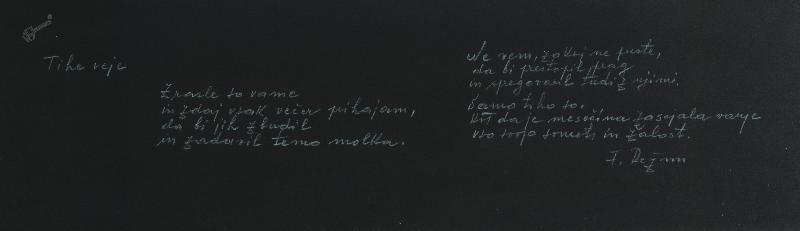 Tihe veje
Zrasle so vame
in zdaj vsak večer prihajam,
da bi jih zbudil
in zadavil temo molka.
Ne vem, zakaj ne puste,
da bi prestopil prag
in spregovoril tudi z njimi.
Samo tiho so.
Kot da je mesečina zasejala vanje
vso svojo samoto in žalost.
I. Režun